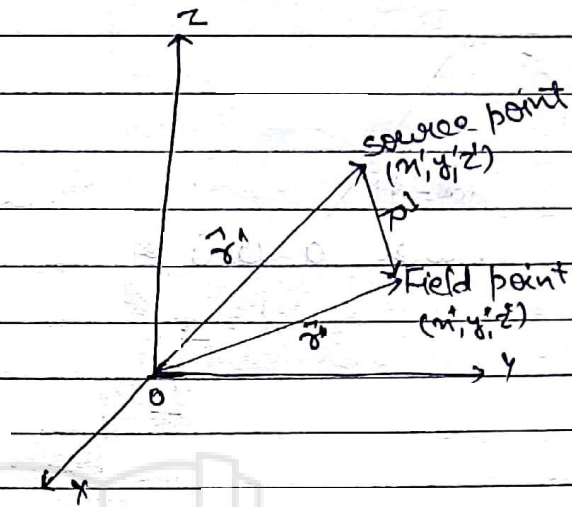 Z
source point
(x', y', z')
Field point
(x'', y'', z'')
Y
O
X